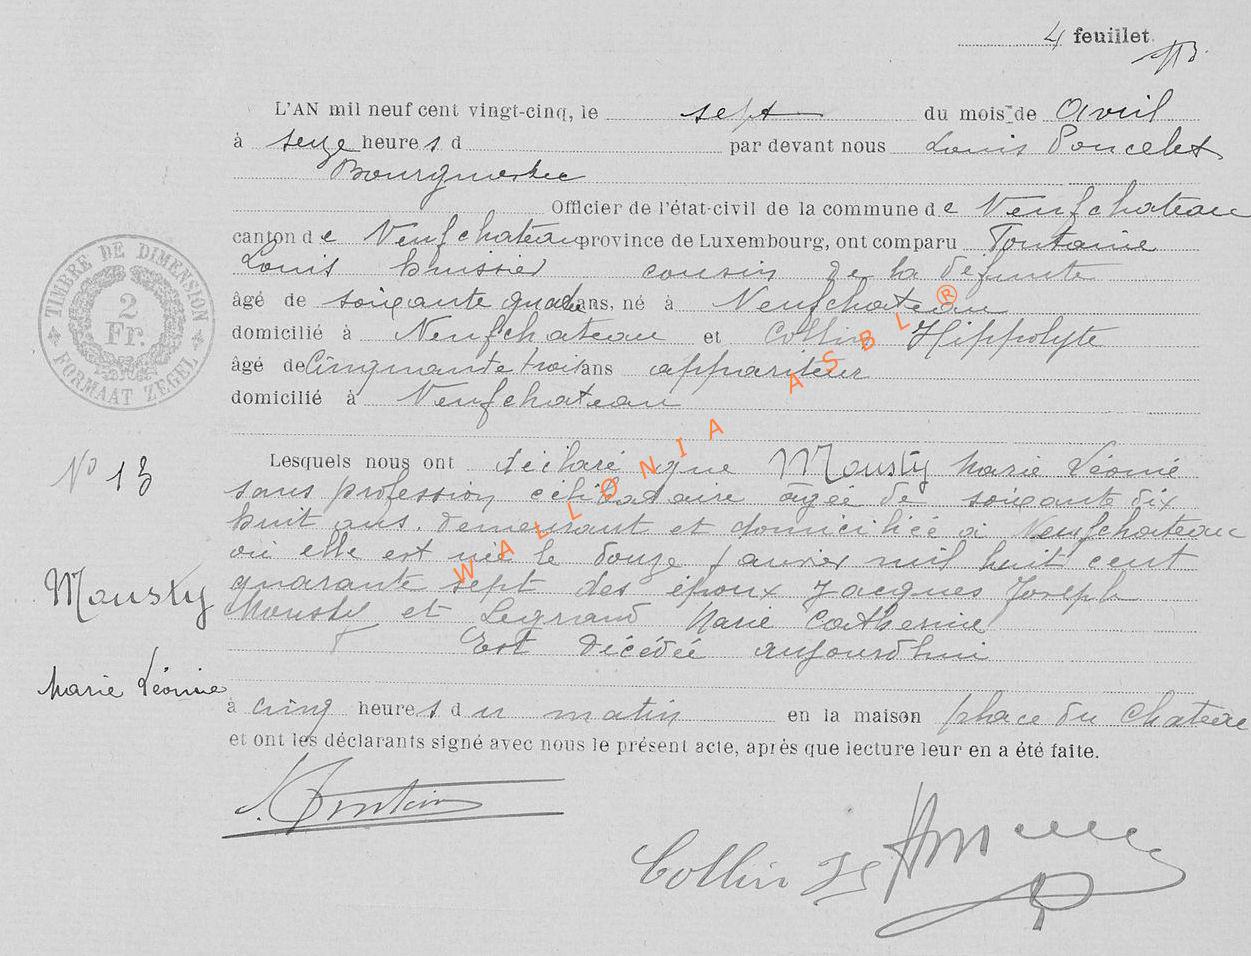 4 feuillet
L'AN mil neuf cent vingt-cinq, le sept du mois de Avril
à seize heures d par devant nous Louis Poncelet
Bourgmestre
Officier de l'état-civil de la commune de Neufchateau
canton de Neufchateau province de Luxembourg, ont comparu Fontaine
Louis huissier cousin de la défunte
âgé de soixante quatre ans, né à Neufchateau
domicilié à Neufchateau et Collin Hippolyte
âgé de Cinquante trois ans appariteur
domicilié à Neufchateau
TIMBRE DE DIMENSION
2
Fr.
FORMAAT ZEGEL
N° 13
Lesquels nous ont déclaré que Mousty Marie Léonie
sans profession célibataire âgée de soixante dix
huit ans. demeurant et domiciliée à Neufchateau
où elle est née le douze janvier mil huit cent
quarante sept des époux Jacques Joseph
Mousty et Legrand Marie Catherine
Est décédée aujourd'hui
Mousty
Marie Léonie
à cinq heures du matin en la maison place du Chateau
et ont les déclarants signé avec nous le présent acte, après que lecture leur en a été faite.
Collin
WALLONIA ASBL®